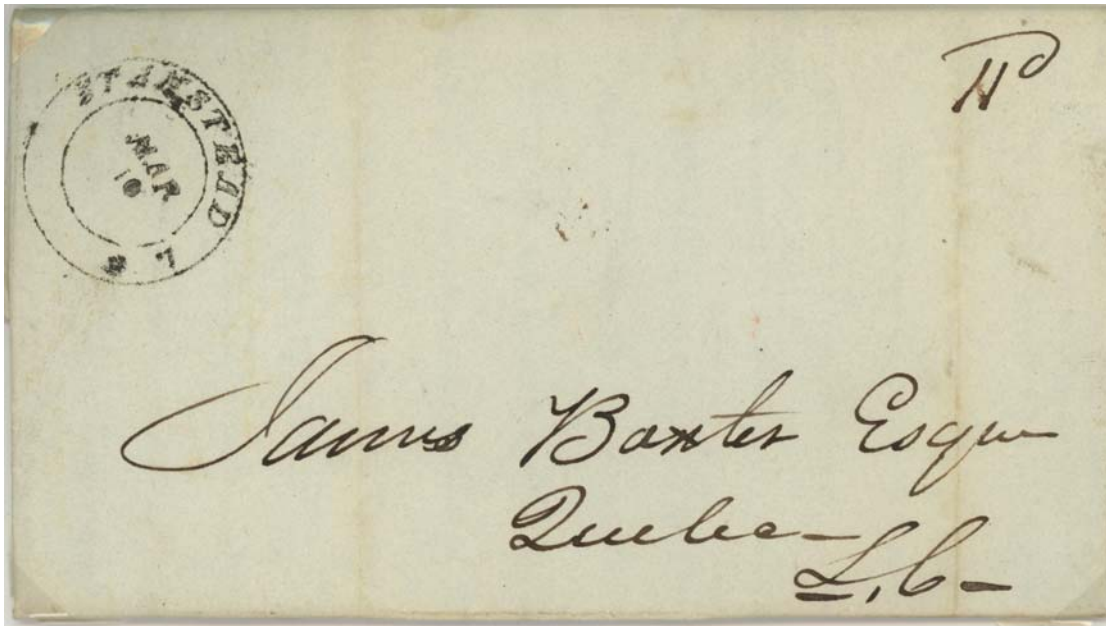 STANSTEAD L C
MAR
10
11D
James Baxter Esqre
Quebec
L.C